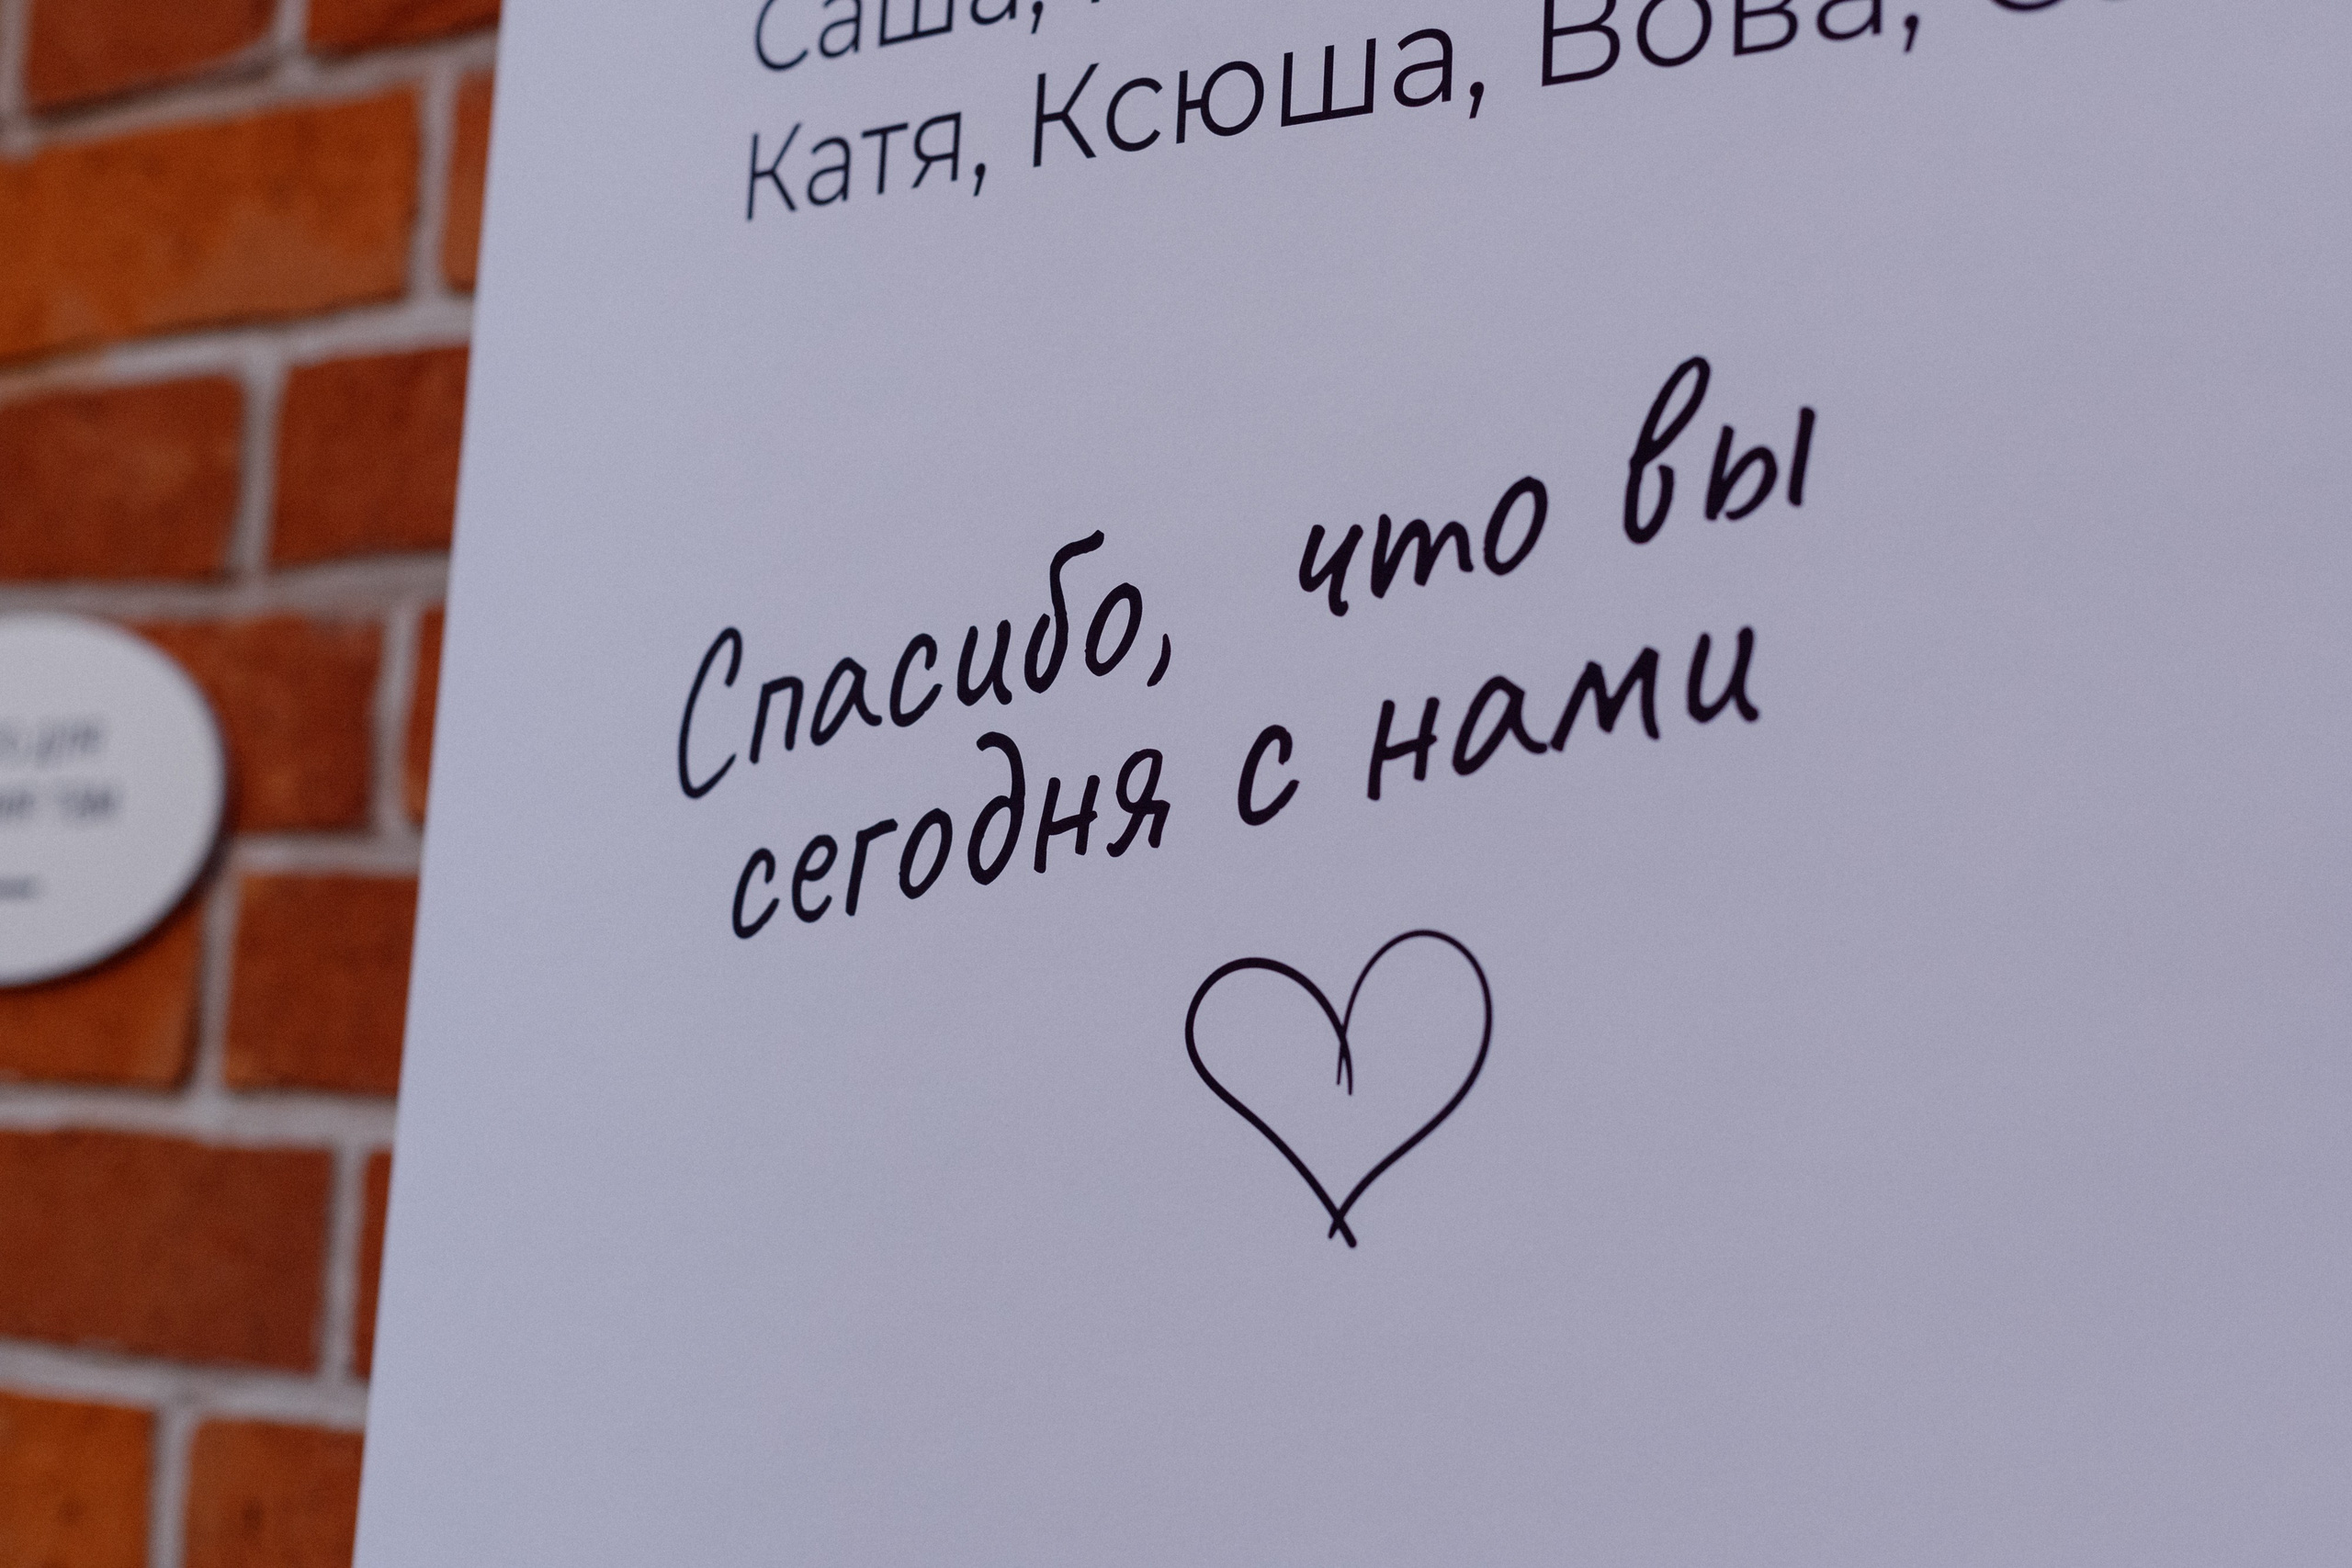 Саша,
Катя, Ксюша, Вова,
Спасибо, что вы
сегодня с нами